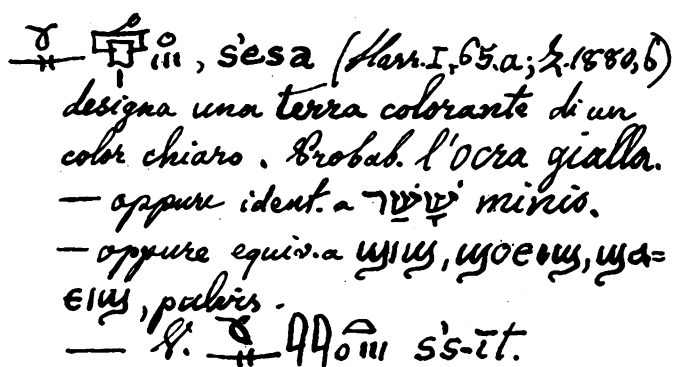 , s'esa (Harr. I, 65.a; Z. 1880, 6)
designa una terra colorante di un
color chiaro. Probab. l'ocra gialla.
— oppure ident. a שָׁשַׁר minio.
— oppure equiv. a ϣⲓϣ, ϣⲟⲉⲓϣ, ϣⲁ=
ⲉⲓϣ, pulvis.
— V. s's-īt.